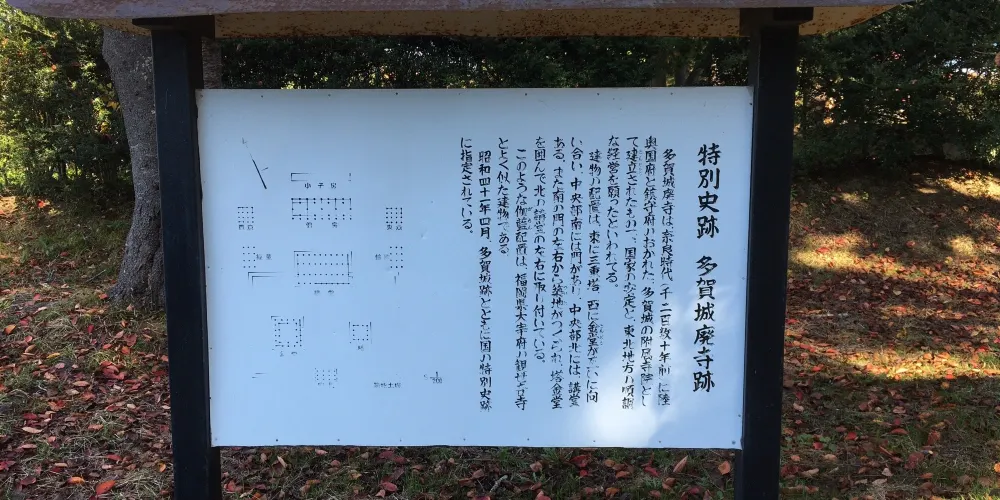 特別史跡 多賀城廃寺跡
多賀城廃寺は、奈良時代(千二百数十年前)に陸
奥国府と鎮守府のおかれた、多賀城の附属寺院とし
て建立されたもので、国家の安定と、東北地方の順調
な経営を願ったといわれてる。
建物の配置は、東に三重塔、西に金堂がたがいに向
い合い、中央部南には門があり、中央部北には、講堂
ある。また南の門の左右から築地がつくられ、塔金堂
を囲んで北の講堂の左右に取り付いている。
このような伽藍配置は、福岡県太宰府の観世音寺
とよく似た建物である。
昭和四十一年四月、多賀城跡とともに国の特別史跡
に指定されている。
小子房
僧房